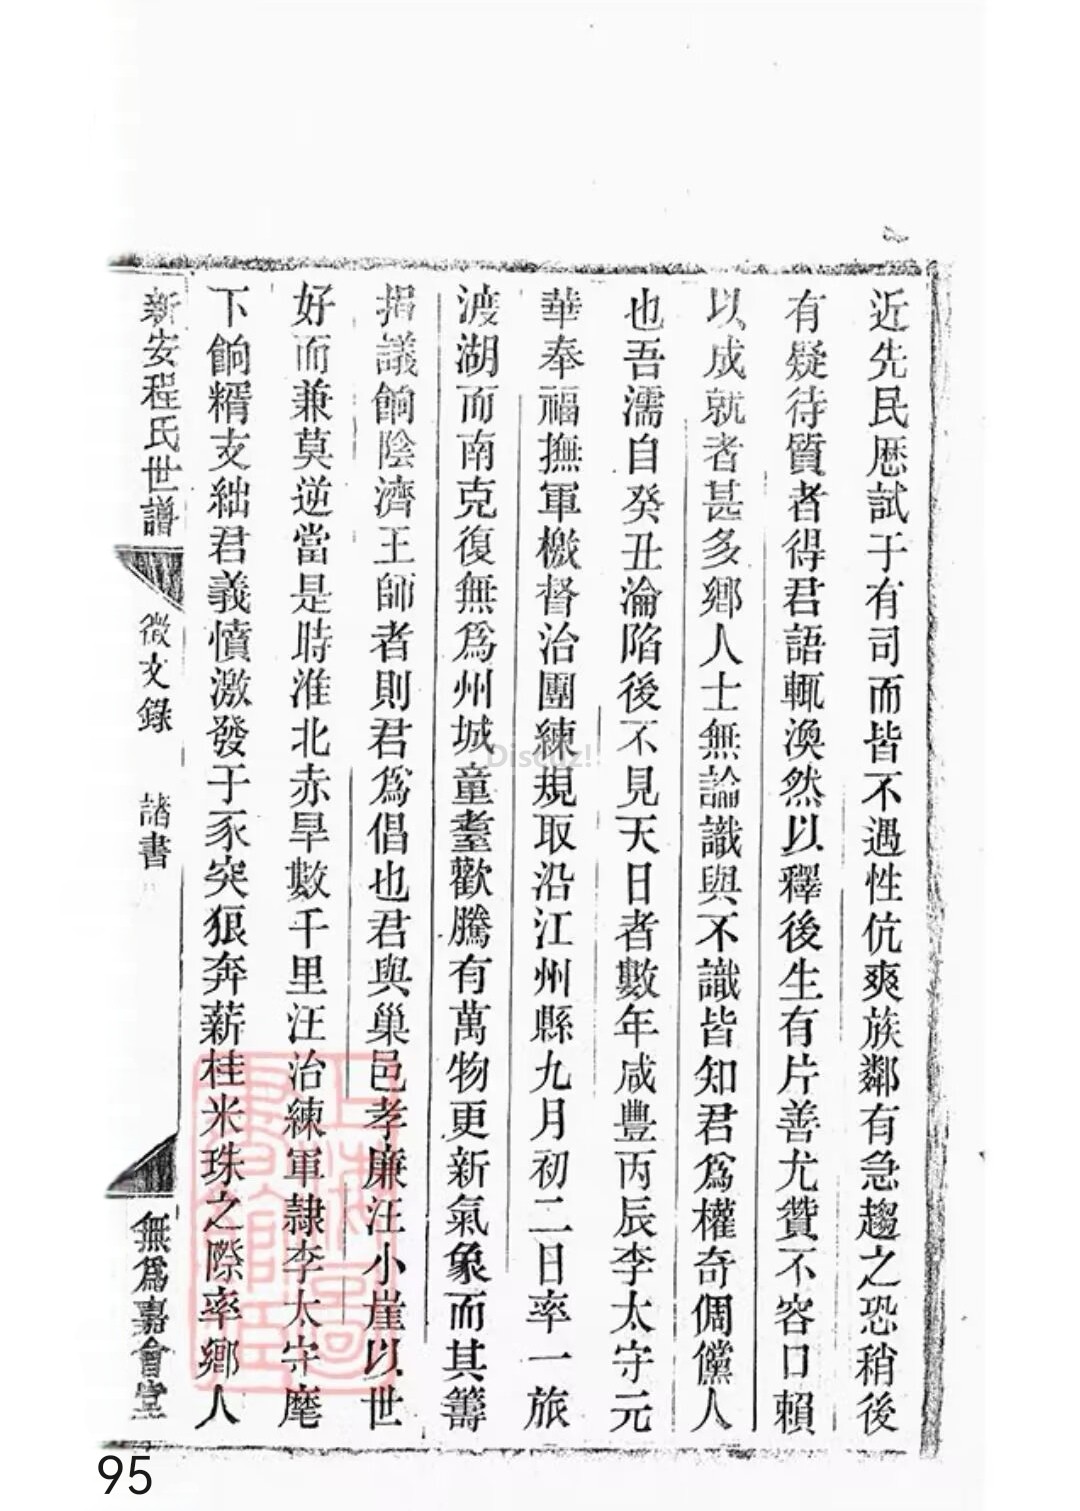 近先民歷試于有司而皆不遇性伉爽族鄰有急趨之恐稍後
有疑待質者得君語輒渙然以釋後生有片善尤贊不容口賴
以成就者甚多鄉人士無論識與不識皆知君爲權奇倜儻人
也吾濡自癸丑淪陷後不見天日者數年咸豐丙辰李太守元
華奉福撫軍檄督治團練規取沿江州縣九月初二日率一旅
渡湖而南克復無爲州城童耋歡騰有萬物更新氣象而其籌
捐議餉陰濟王師者則君爲倡也君與巢邑孝廉汪小崖以世
好而兼莫逆當是時淮北赤旱數千里汪治練軍隷李太守麾
下餉糈支絀君義憤激發于豕突狼奔薪桂米珠之際率鄉人
新安程氏世譜
徵文錄
諸書
無爲嘉會堂
上海圖書館藏
Discuz!
95